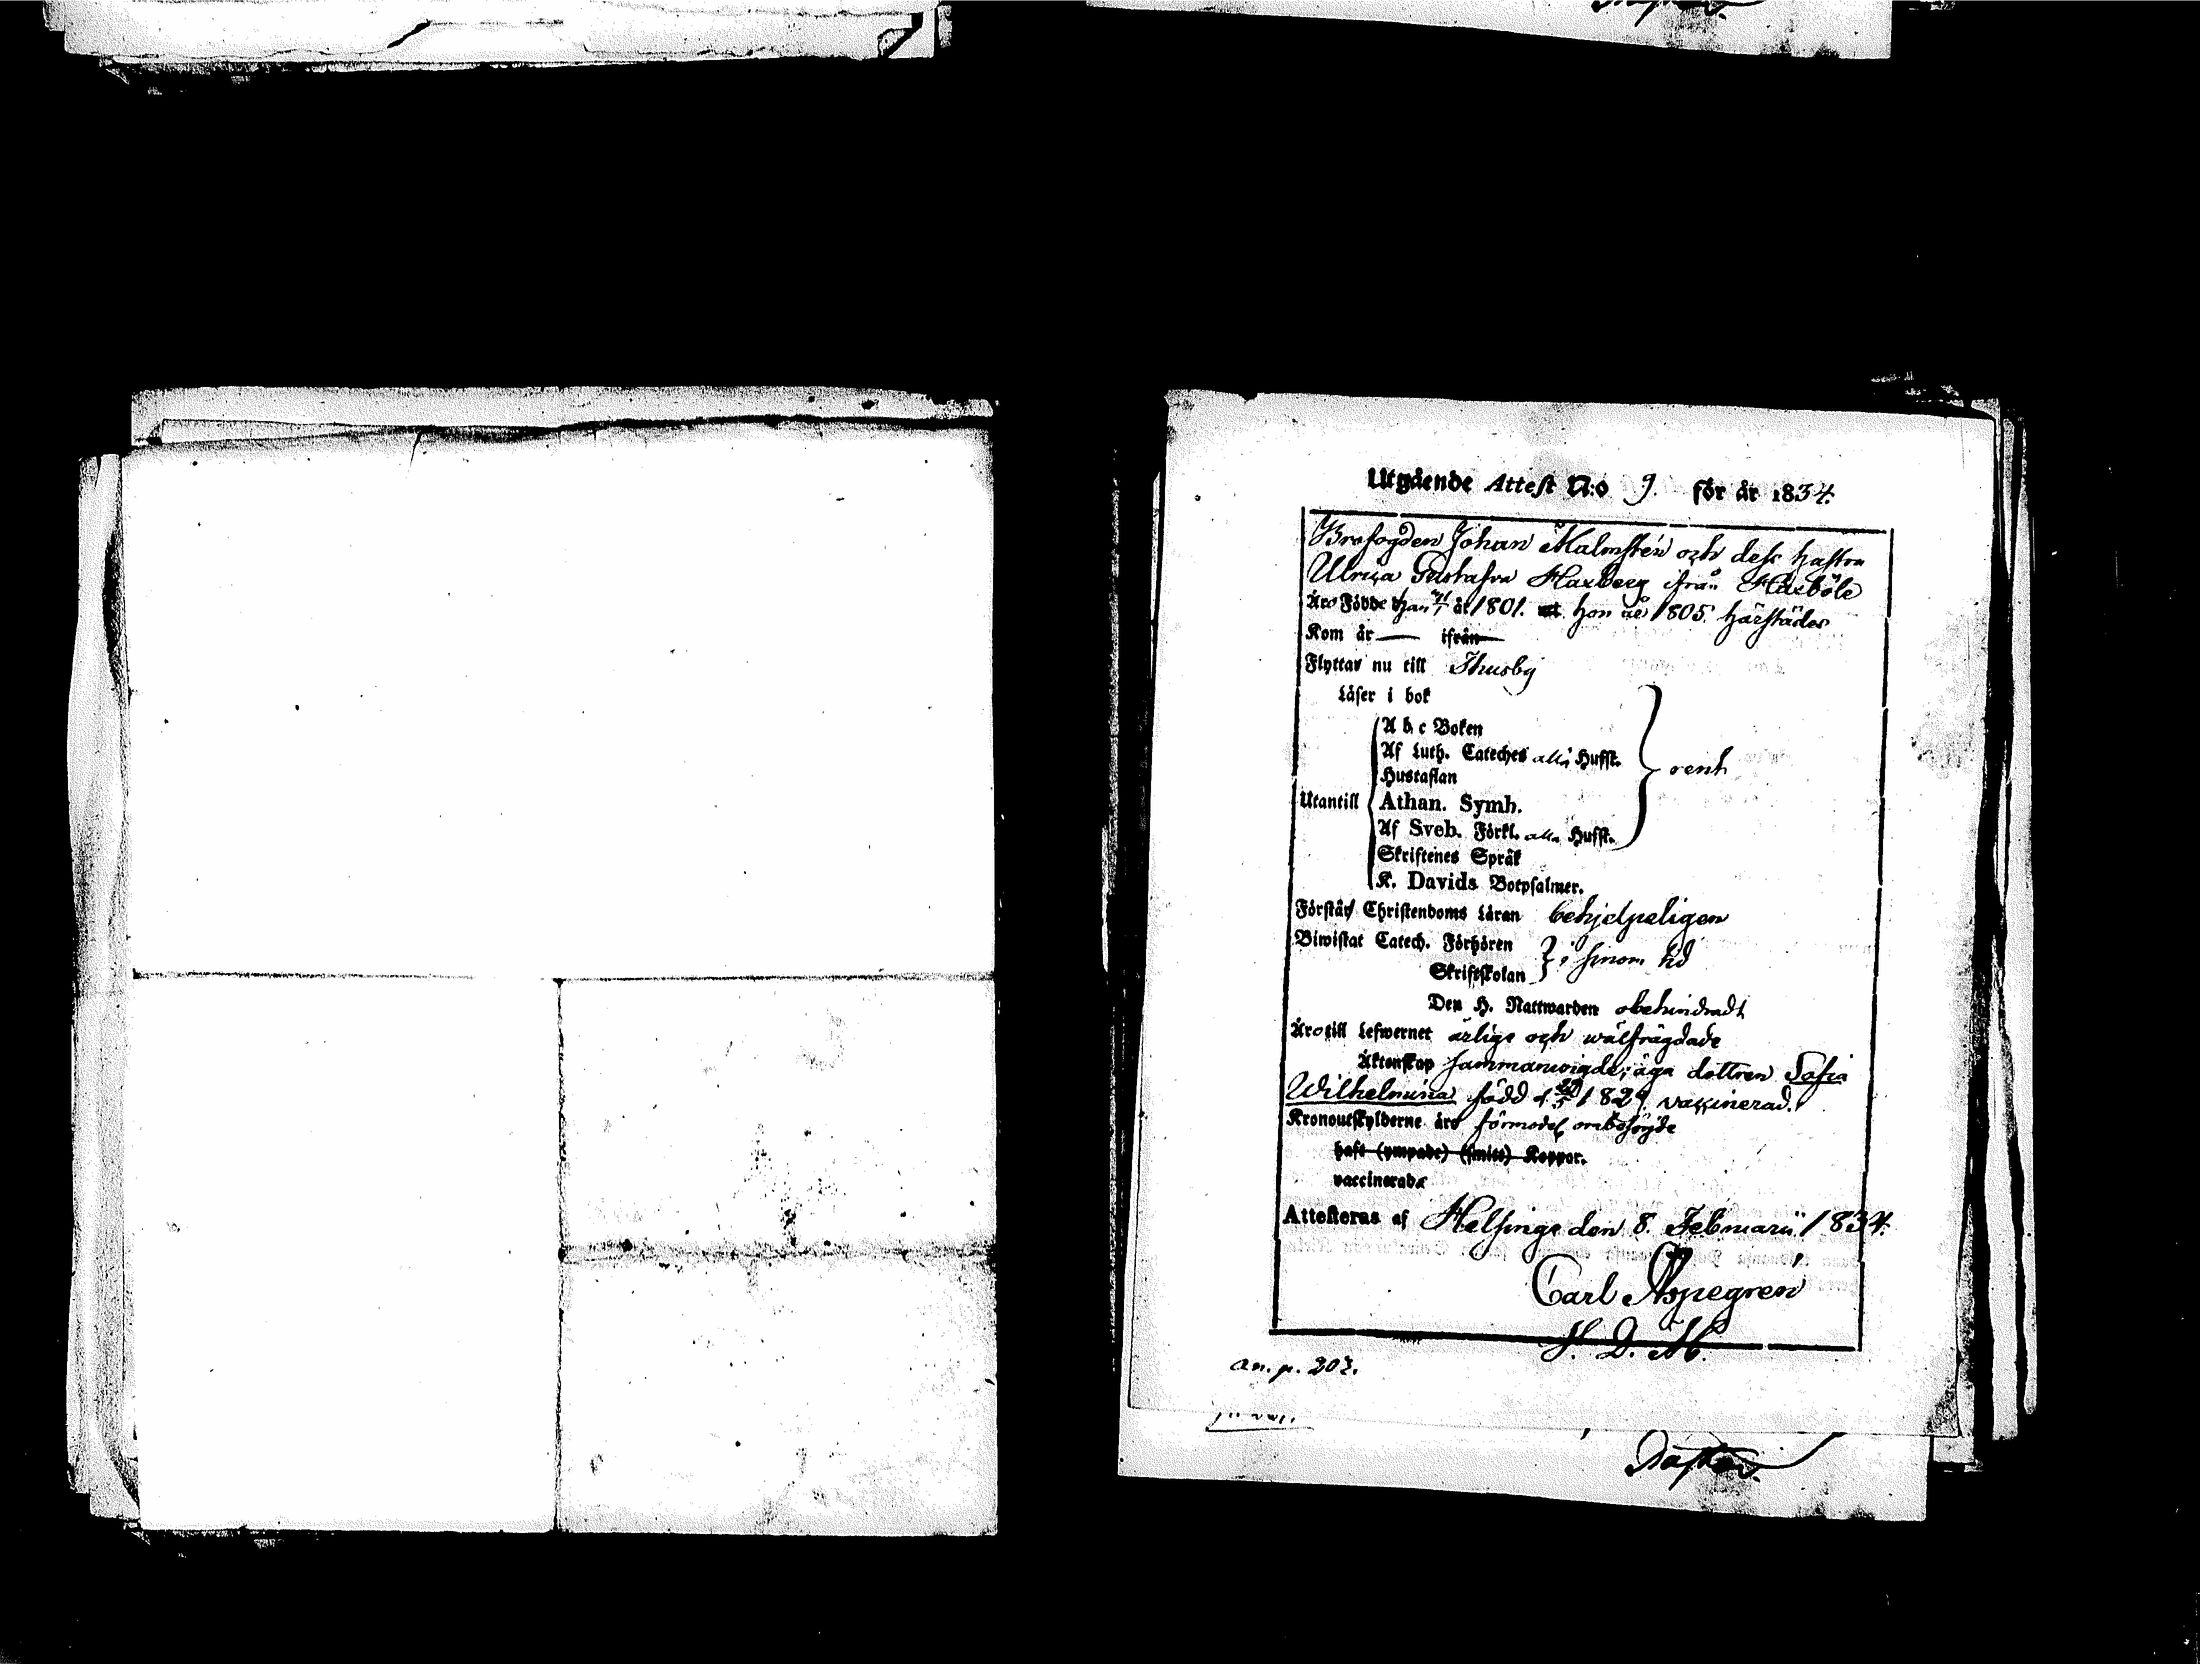 Utgående Attest N:o 9. för år 1834.
Brofogden Johan Malmstén och dess hustru
Ulrica Gustafva Haxberg ifrån Haxböle
Äro Födde han år 1801. hon år 1805. härstädes
Kom år — ifrån
Flyttar nu till Thusby
Läser i bok
A b c Boken
Af Luth. Cateches alla Hufst.
Hustaflan
rent
Utantill
Athan. Symb.
Af Sveb. Förkl. alla Hufst.
Skriftenes Språk
K. Davids Botpsalmer.
Förstår Christendoms Läran behjelpeligen
Biwistat Catech. Förhören
i sinom tid
Skriftskolan
Den H. Nattwarden obehindradt
Äro till Lefwernet ärlige och wälfrägdade
Äktenskap sammanvigde; äga dottren Sofia
Wilhelmina född d. 1829. vaccinerad.
Kronoutskylderne äro förmodel. ombesörgde
haft (ympade) (smitt) Koppor.
vaccinerade
Attesteras af Helsinge den 8. Februarii 1834.
Carl Aspegren
V. D. M.
an. p. 203.